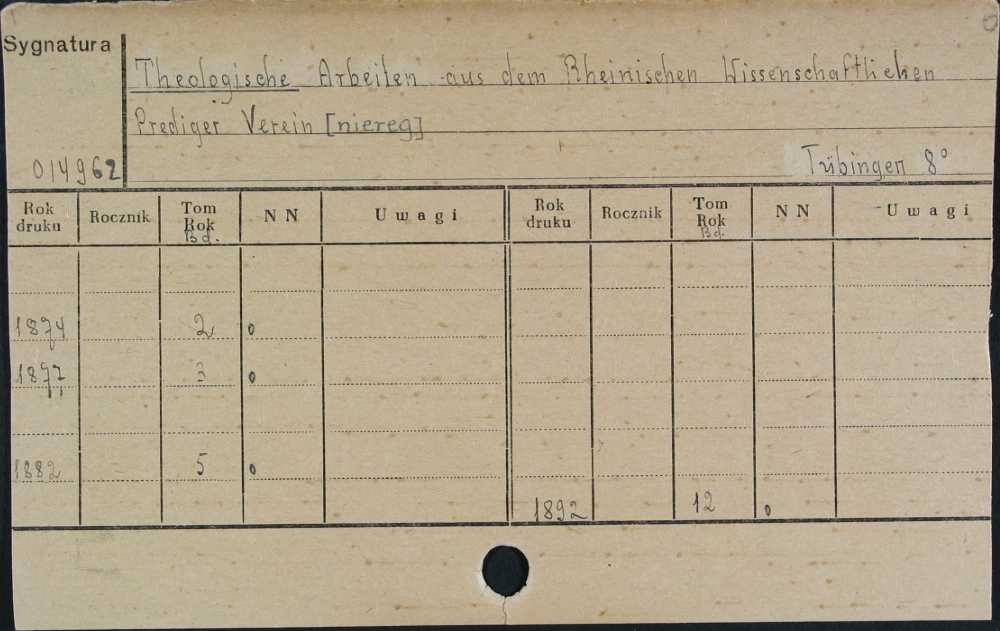 Sygnatura
Theologische Arbeiten aus dem Rheinischen Wissenschaftlichen
Prediger Verein [niereg]
014962
Tübingen 8°
Rok druku Rocznik Tom Rok Bd. NN Uwagi Rok druku Rocznik Tom Rok Bd. NN Uwagi
1874 2
1877 3
1882 5
1892 12